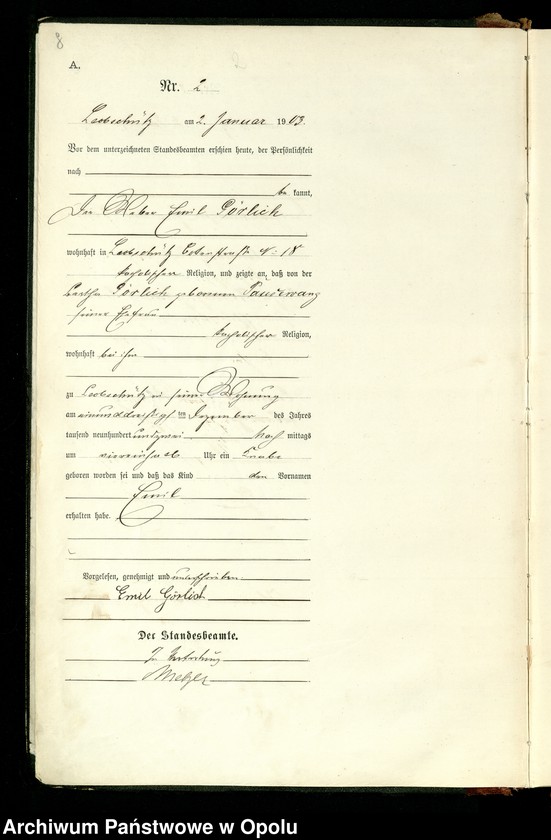 8
A.
Nr. 2
Leobschütz am 2. Januar 1903.
Vor dem unterzeichneten Standesbeamten erschien heute, der Persönlichkeit
nach
be kannt,
Der Weber Emil Görlich
wohnhaft in Leobschütz 18
katholischer Religion, und zeigte an, daß von der
Bertha Görlich geborenen
seiner Ehefrau
katholischer Religion,
wohnhaft bei ihm
zu Leobschütz in seiner Wohnung
am einunddreißigsten Dezember des Jahres
tausend neunhundert und zwei Nach mittags
um viereinhalb Uhr ein Knabe
geboren worden sei und daß das Kind den Vornamen
Emil
erhalten habe.
Vorgelesen, genehmigt und unterschrieben
Emil Görlich
Der Standesbeamte.
In Vertretung
Archiwum Państwowe w Opolu